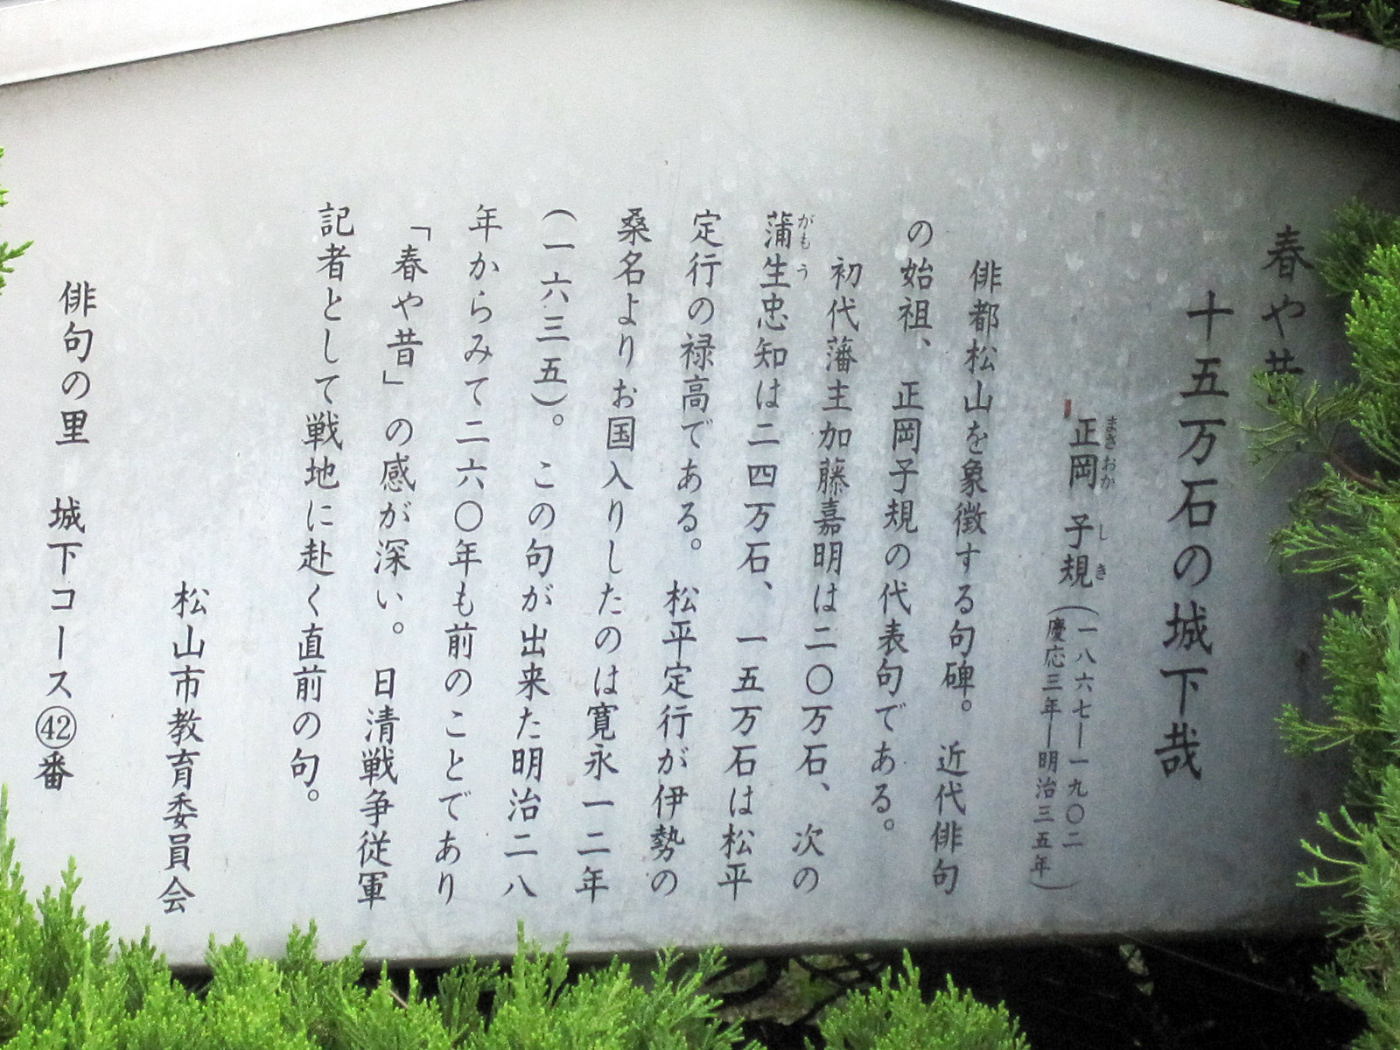 春や昔
十五万石の城下哉
正岡子規(一八六七―一九〇二
慶応三年―明治三五年)
まさおか しき
俳都松山を象徴する句碑。近代俳句
の始祖、正岡子規の代表句である。
初代藩主加藤嘉明は二〇万石、次の
蒲生忠知は二四万石、一五万石は松平
がもう
定行の禄高である。松平定行が伊勢の
桑名よりお国入りしたのは寛永一二年
(一六三五)。この句が出来た明治二八
年からみて二六〇年も前のことであり
「春や昔」の感が深い。日清戦争従軍
記者として戦地に赴く直前の句。
松山市教育委員会
俳句の里 城下コース㊷番